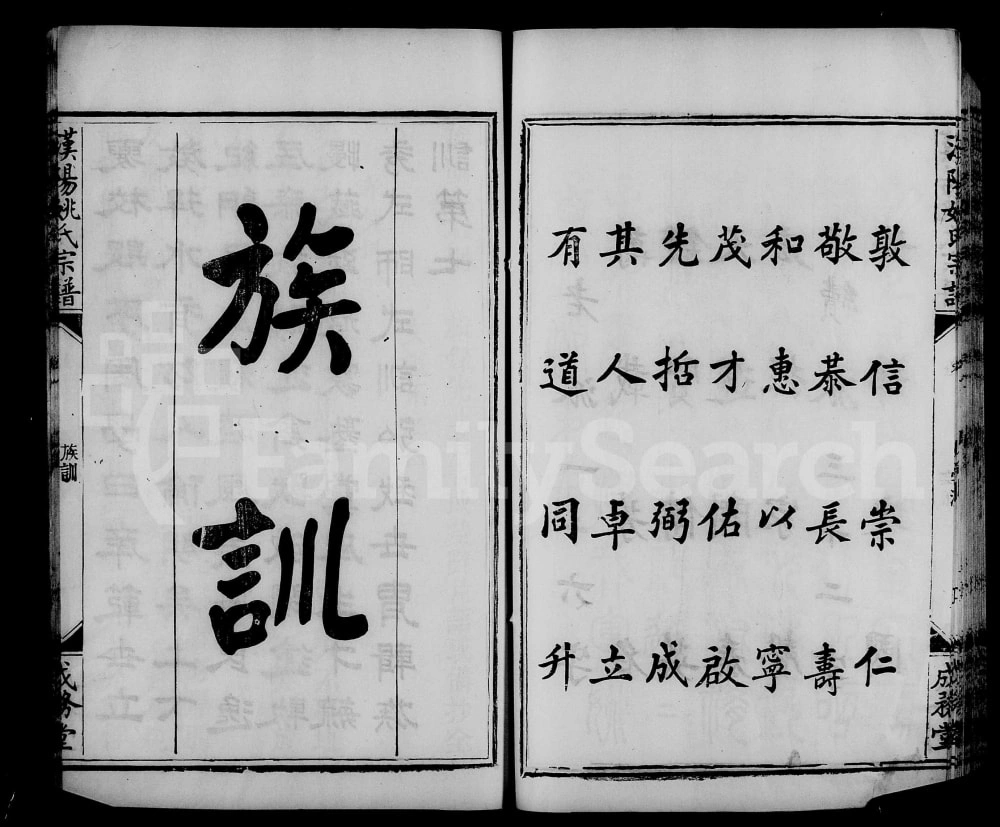 敦信崇仁
敬恭長壽
和惠以寧
茂才佑啟
先哲弼成
其人卓立
有道同升
成務堂
族訓
漢陽姚氏宗譜
族訓
成務堂
FamilySearch